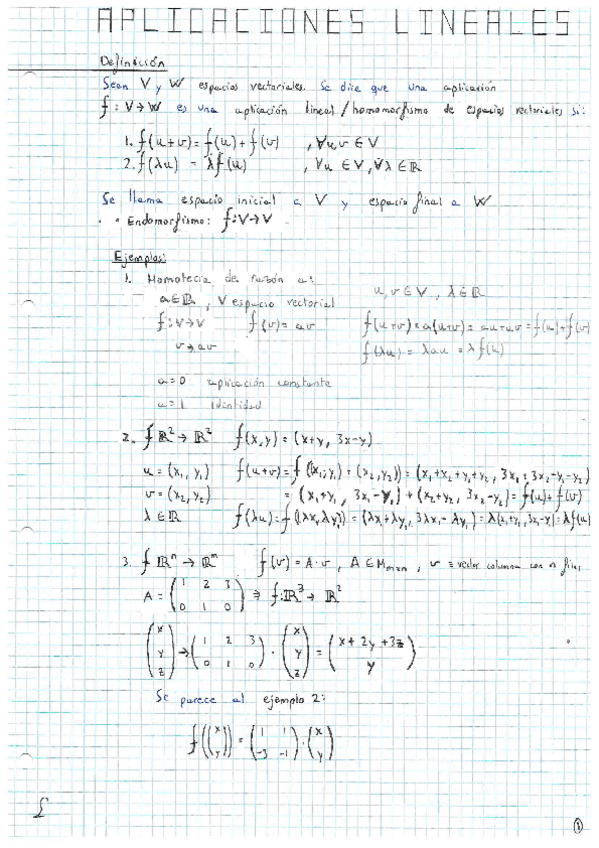 APLICACIONES LINEALES
Definición
Sean V y W espacios vectoriales. Se dice que una aplicación
f: V→W es una aplicación lineal/homomorfismo de espacios vectoriales si:
1. f(u+v) = f(u) + f(v) , ∀u,v ∈ V
2. f(λu) = λf(u) , ∀u ∈ V, ∀λ ∈ ℝ
Se llama espacio inicial a V y espacio final a W
• Endomorfismo: f: V→V
Ejemplos:
1. Homotecia de razón a:
a∈ℝ, V espacio vectorial u,v ∈ V, λ ∈ ℝ
f: V→V f(v) = av f(u+v) = a(u+v) = au+av = f(u)+f(v)
v→av f(λu) = λau = λf(u)
a=0 aplicación constante
a=1 identidad
2. f ℝ² → ℝ² f(x,y) = (x+y, 3x-y)
u = (x₁, y₁) f(u+v) = f((x₁,y₁) + (x₂,y₂)) = (x₁+x₂+y₁+y₂, 3x₁+3x₂-y₁-y₂)
v = (x₂, y₂) = (x₁+y₁, 3x₁-y₁) + (x₂+y₂, 3x₂-y₂) = f(u)+f(v)
λ ∈ ℝ f(λu) = f((λx₁,λy₁)) = (λx₁+λy₁, 3λx₁-λy₁) = λ(x₁+y₁, 3x₁-y₁) = λf(u)
3. f ℝⁿ → ℝᵐ f(v) = A·v, A ∈ Mₘₓₙ, v = vector columna con n filas
A = (1 2 3
0 1 0) ⇒ f: ℝ³ → ℝ²
(x
y
z) → (1 2 3
0 1 0) · (x
y
z) = (x+2y+3z
y)
Se parece al ejemplo 2:
f((x
y)) = (1 1
-3 -1) · (x
y)
1